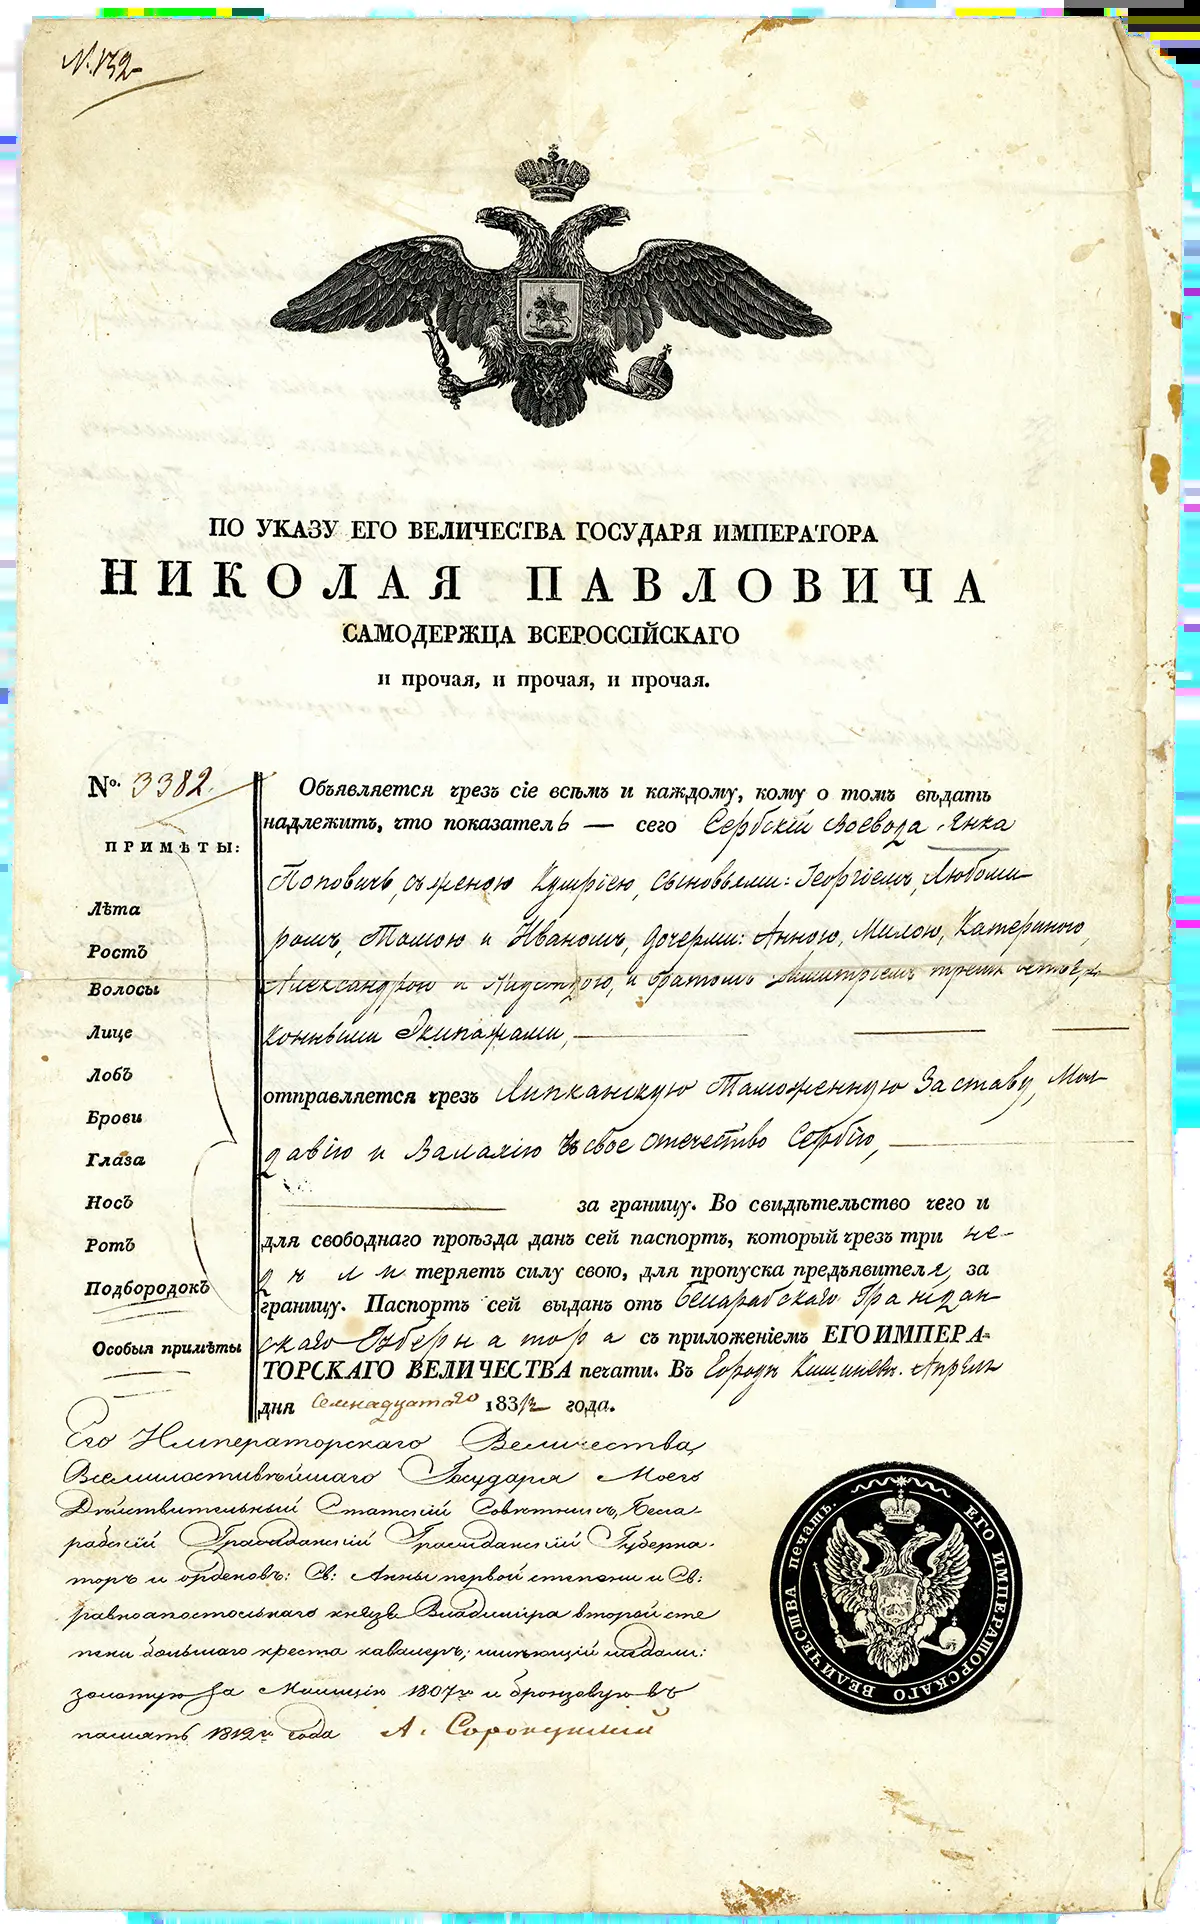 N. 132
ПО УКАЗУ ЕГО ВЕЛИЧЕСТВА ГОСУДАРЯ ИМПЕРАТОРА
НИКОЛАЯ ПАВЛОВИЧА
САМОДЕРЖЦА ВСЕРОССІЙСКАГО
и прочая, и прочая, и прочая.
№. 3382.
ПРИМѢТЫ:
Лѣта
Ростъ
Волосы
Лице
Лобъ
Брови
Глаза
Носъ
Ротъ
Подбородокъ
Особыя примѣты
Объявляется чрезъ сіе всѣмъ и каждому, кому о томъ вѣдать
надлежитъ, что показатель — сего Сербскій Воевода Янка
Поповичь, съ женою, сыновьями: Георгіемъ, Любоми-
ромъ, Томою и Иваномъ, дочерми: Анною, Милою, Катериною,
Александрою и и братомъ Димитріемъ тремя
конными Экипажами,
отправляется чрезъ Липканскую Таможенную Заставу, Мол-
давію и Валахію въ свое отечество Сербію,
за границу. Во свидѣтельство чего и
для свободнаго проѣзда данъ сей паспортъ, который чрезъ три не-
дѣли теряетъ силу свою, для пропуска предъявителя, за
границу. Паспортъ сей выданъ отъ Бессарабскаго Граждан-
скаго Губернатора съ приложеніемъ ЕГО ИМПЕРА-
ТОРСКАГО ВЕЛИЧЕСТВА печати. Въ Городѣ Кишиневѣ. Апрѣля
дня Семнадцатаго 183 года.
Его Императорскаго Величества,
Всемилостивѣйшаго Государя Моего
Дѣйствительный Статскій Совѣтникъ, Бесса-
рабскій Гражданскій Гражданскій Губерна-
торъ и орденовъ: Св: Анны первой степени и Св:
равноапостольнаго князя Владиміра второй сте
пени большаго креста кавалеръ; имѣющій медали:
золотую за Милицію 1807го и бронзовую въ
память 1812го года А. Сорокунскій
ЕГО ИМПЕРАТОРСКАГО ВЕЛИЧЕСТВА печать.